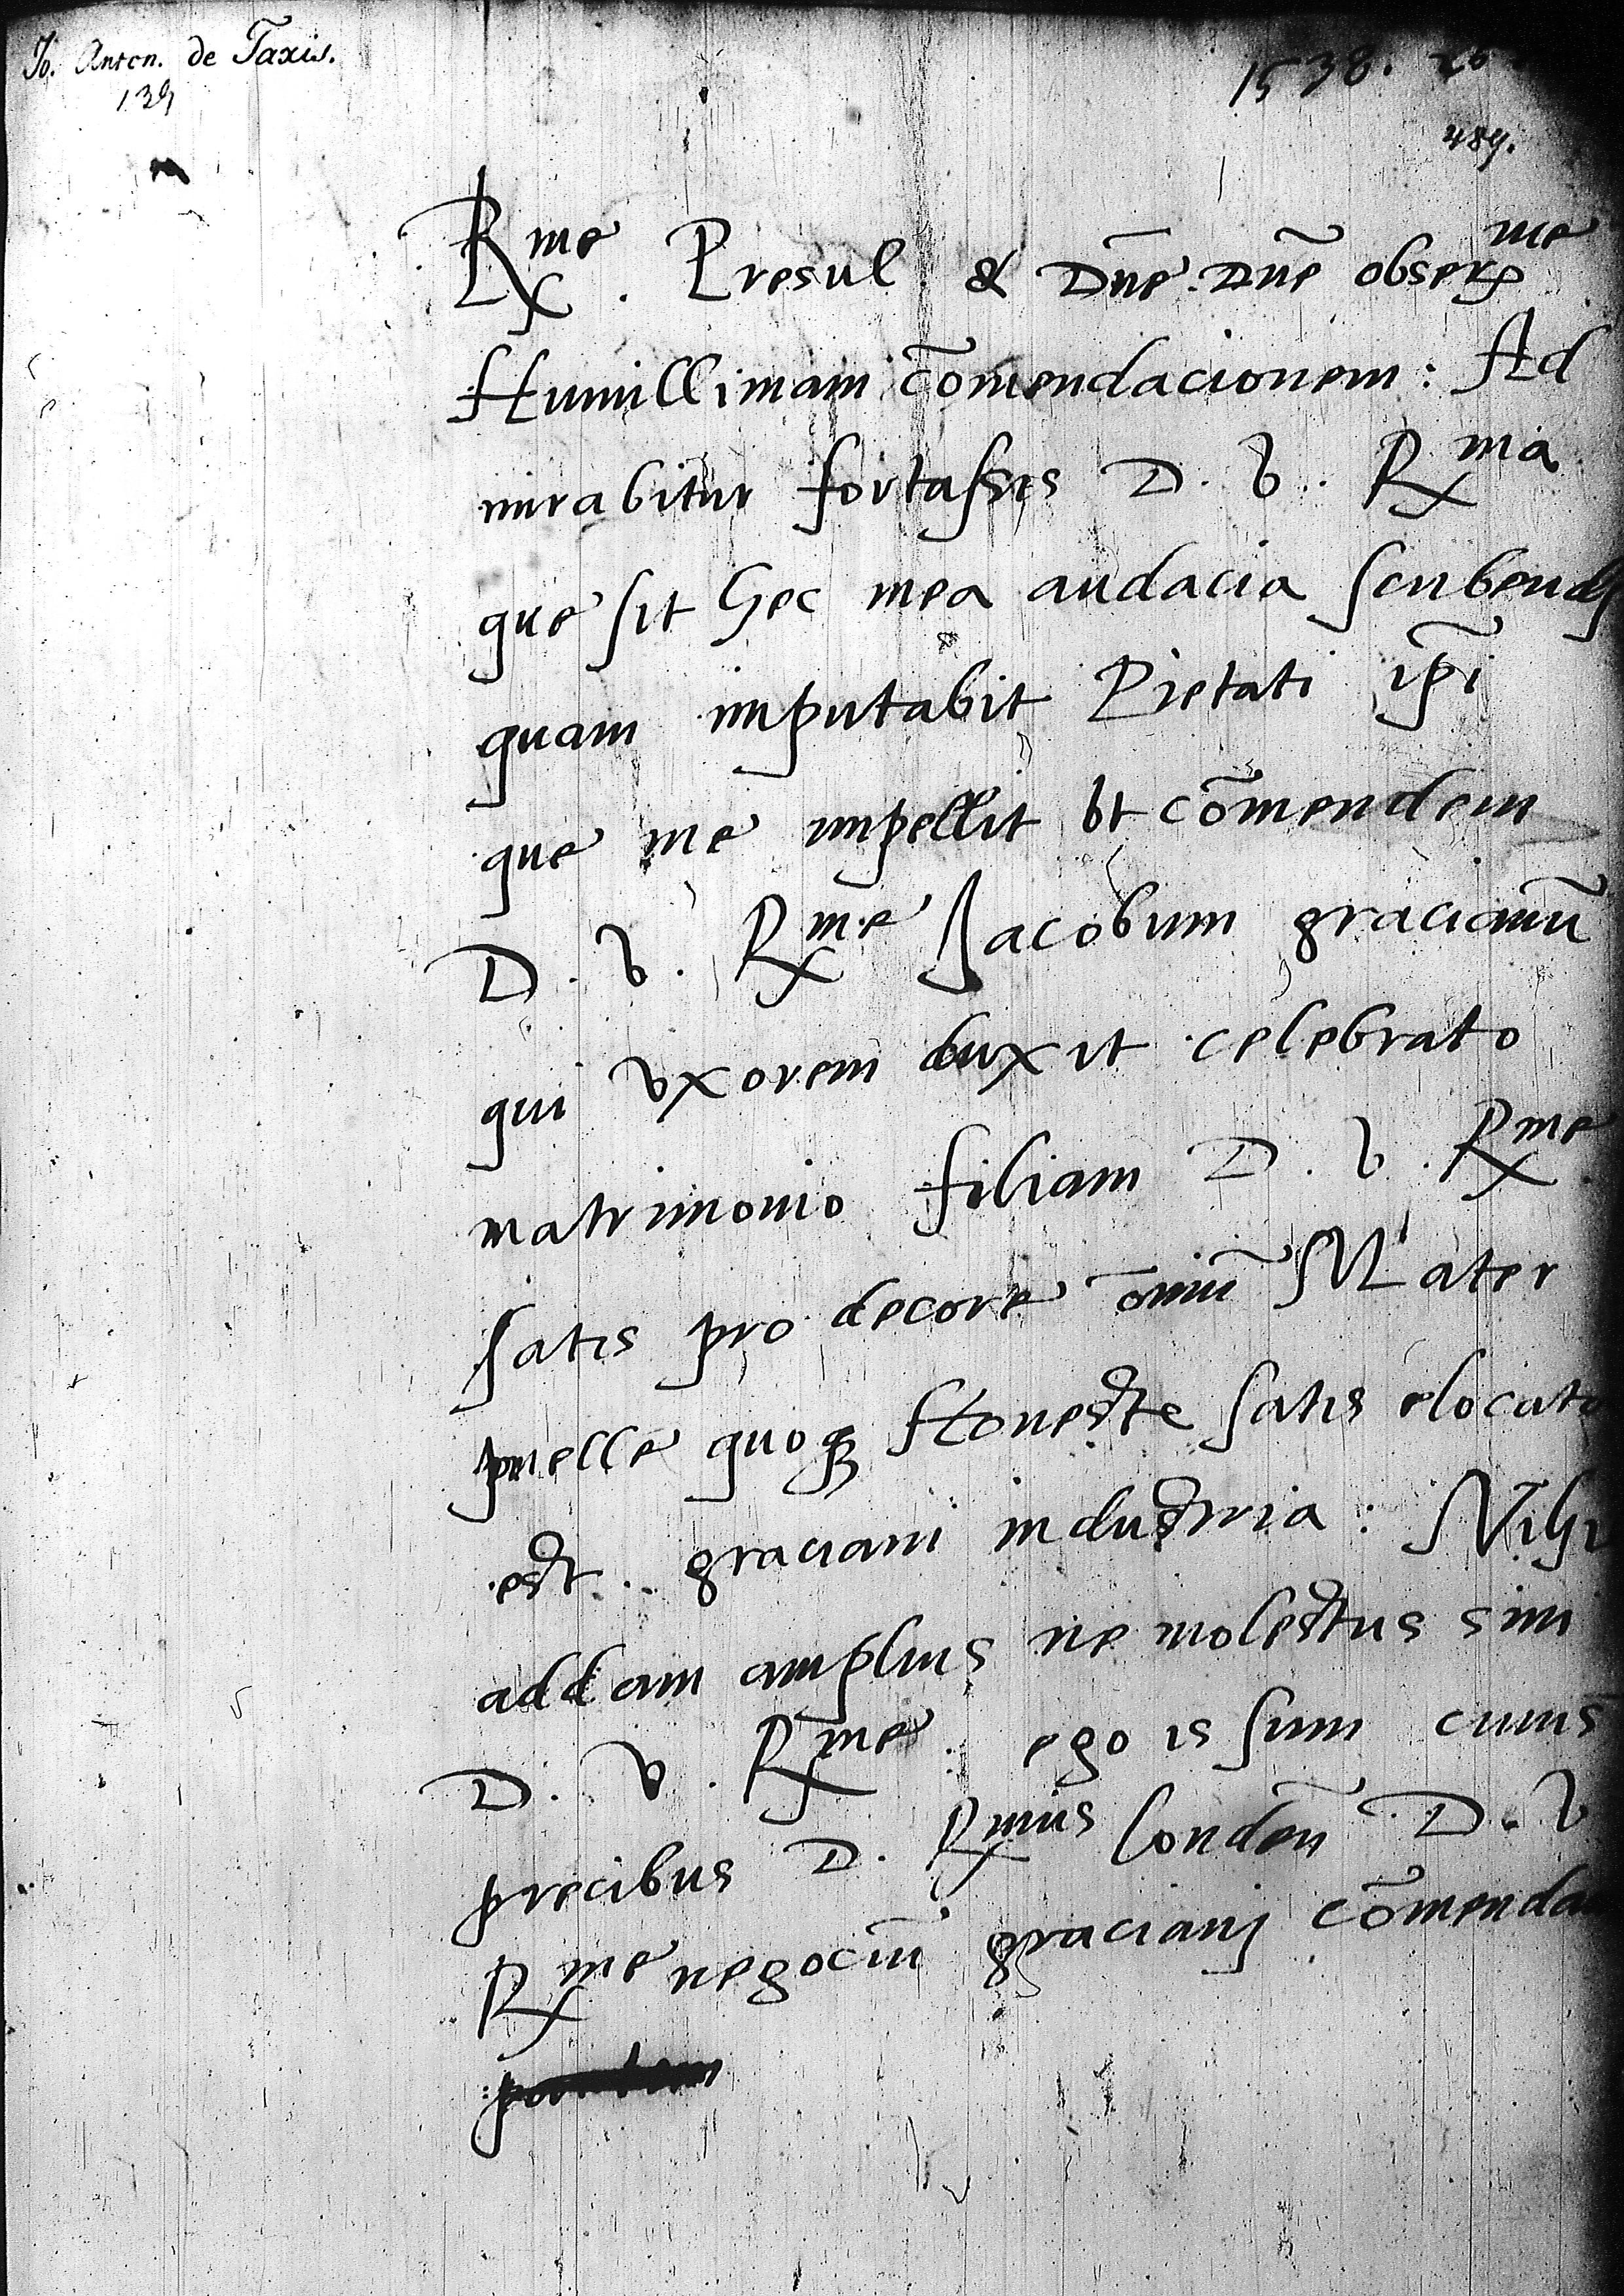 Jo. Anton. de Taxis.
139
1538. 26
489.
R^me. Presul & Dn̄e Dn̄e obser^me
Humillimam cōmendacionem: Ad
mirabitur fortassis D. V. R^ma
que sit hec mea audacia scribendj
quam imputabit Pietati ip̄i
que me impellit vt cōmendem
D. V. R^me Jacobum gracianū
qui vxorem duxit celebrato
matrimonio filiam D. V. R^me
satis pro decore omniū Mater
puelle quoqȝ Honeste satis elocata
est graciani industria: Nihi
addam amplius ne molestus sim
D. V. R^me. ego is sum cuius
precibus D. R^mus Londen̄ D. V
R^me negociū gracianj cōmenda